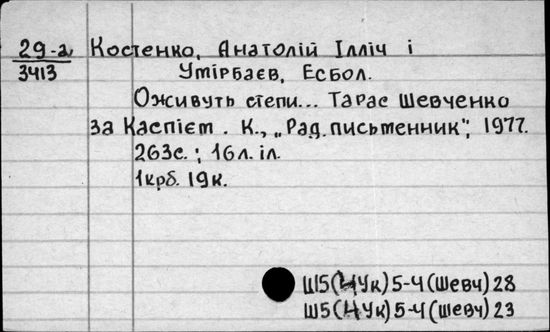 29-а Костенко, Анатолій Ілліч і
3413 Умірбаєв, Есбол.
Оживуть степи... Тарас Шевченко
за Каспієм. К., „Рад. письменник", 1977.
263с.; 16л. іл.
1крб. 19к.
Ш5(4Ук)5-4(Шевч)28
Ш5(4Ук)5-4(Шевч)23